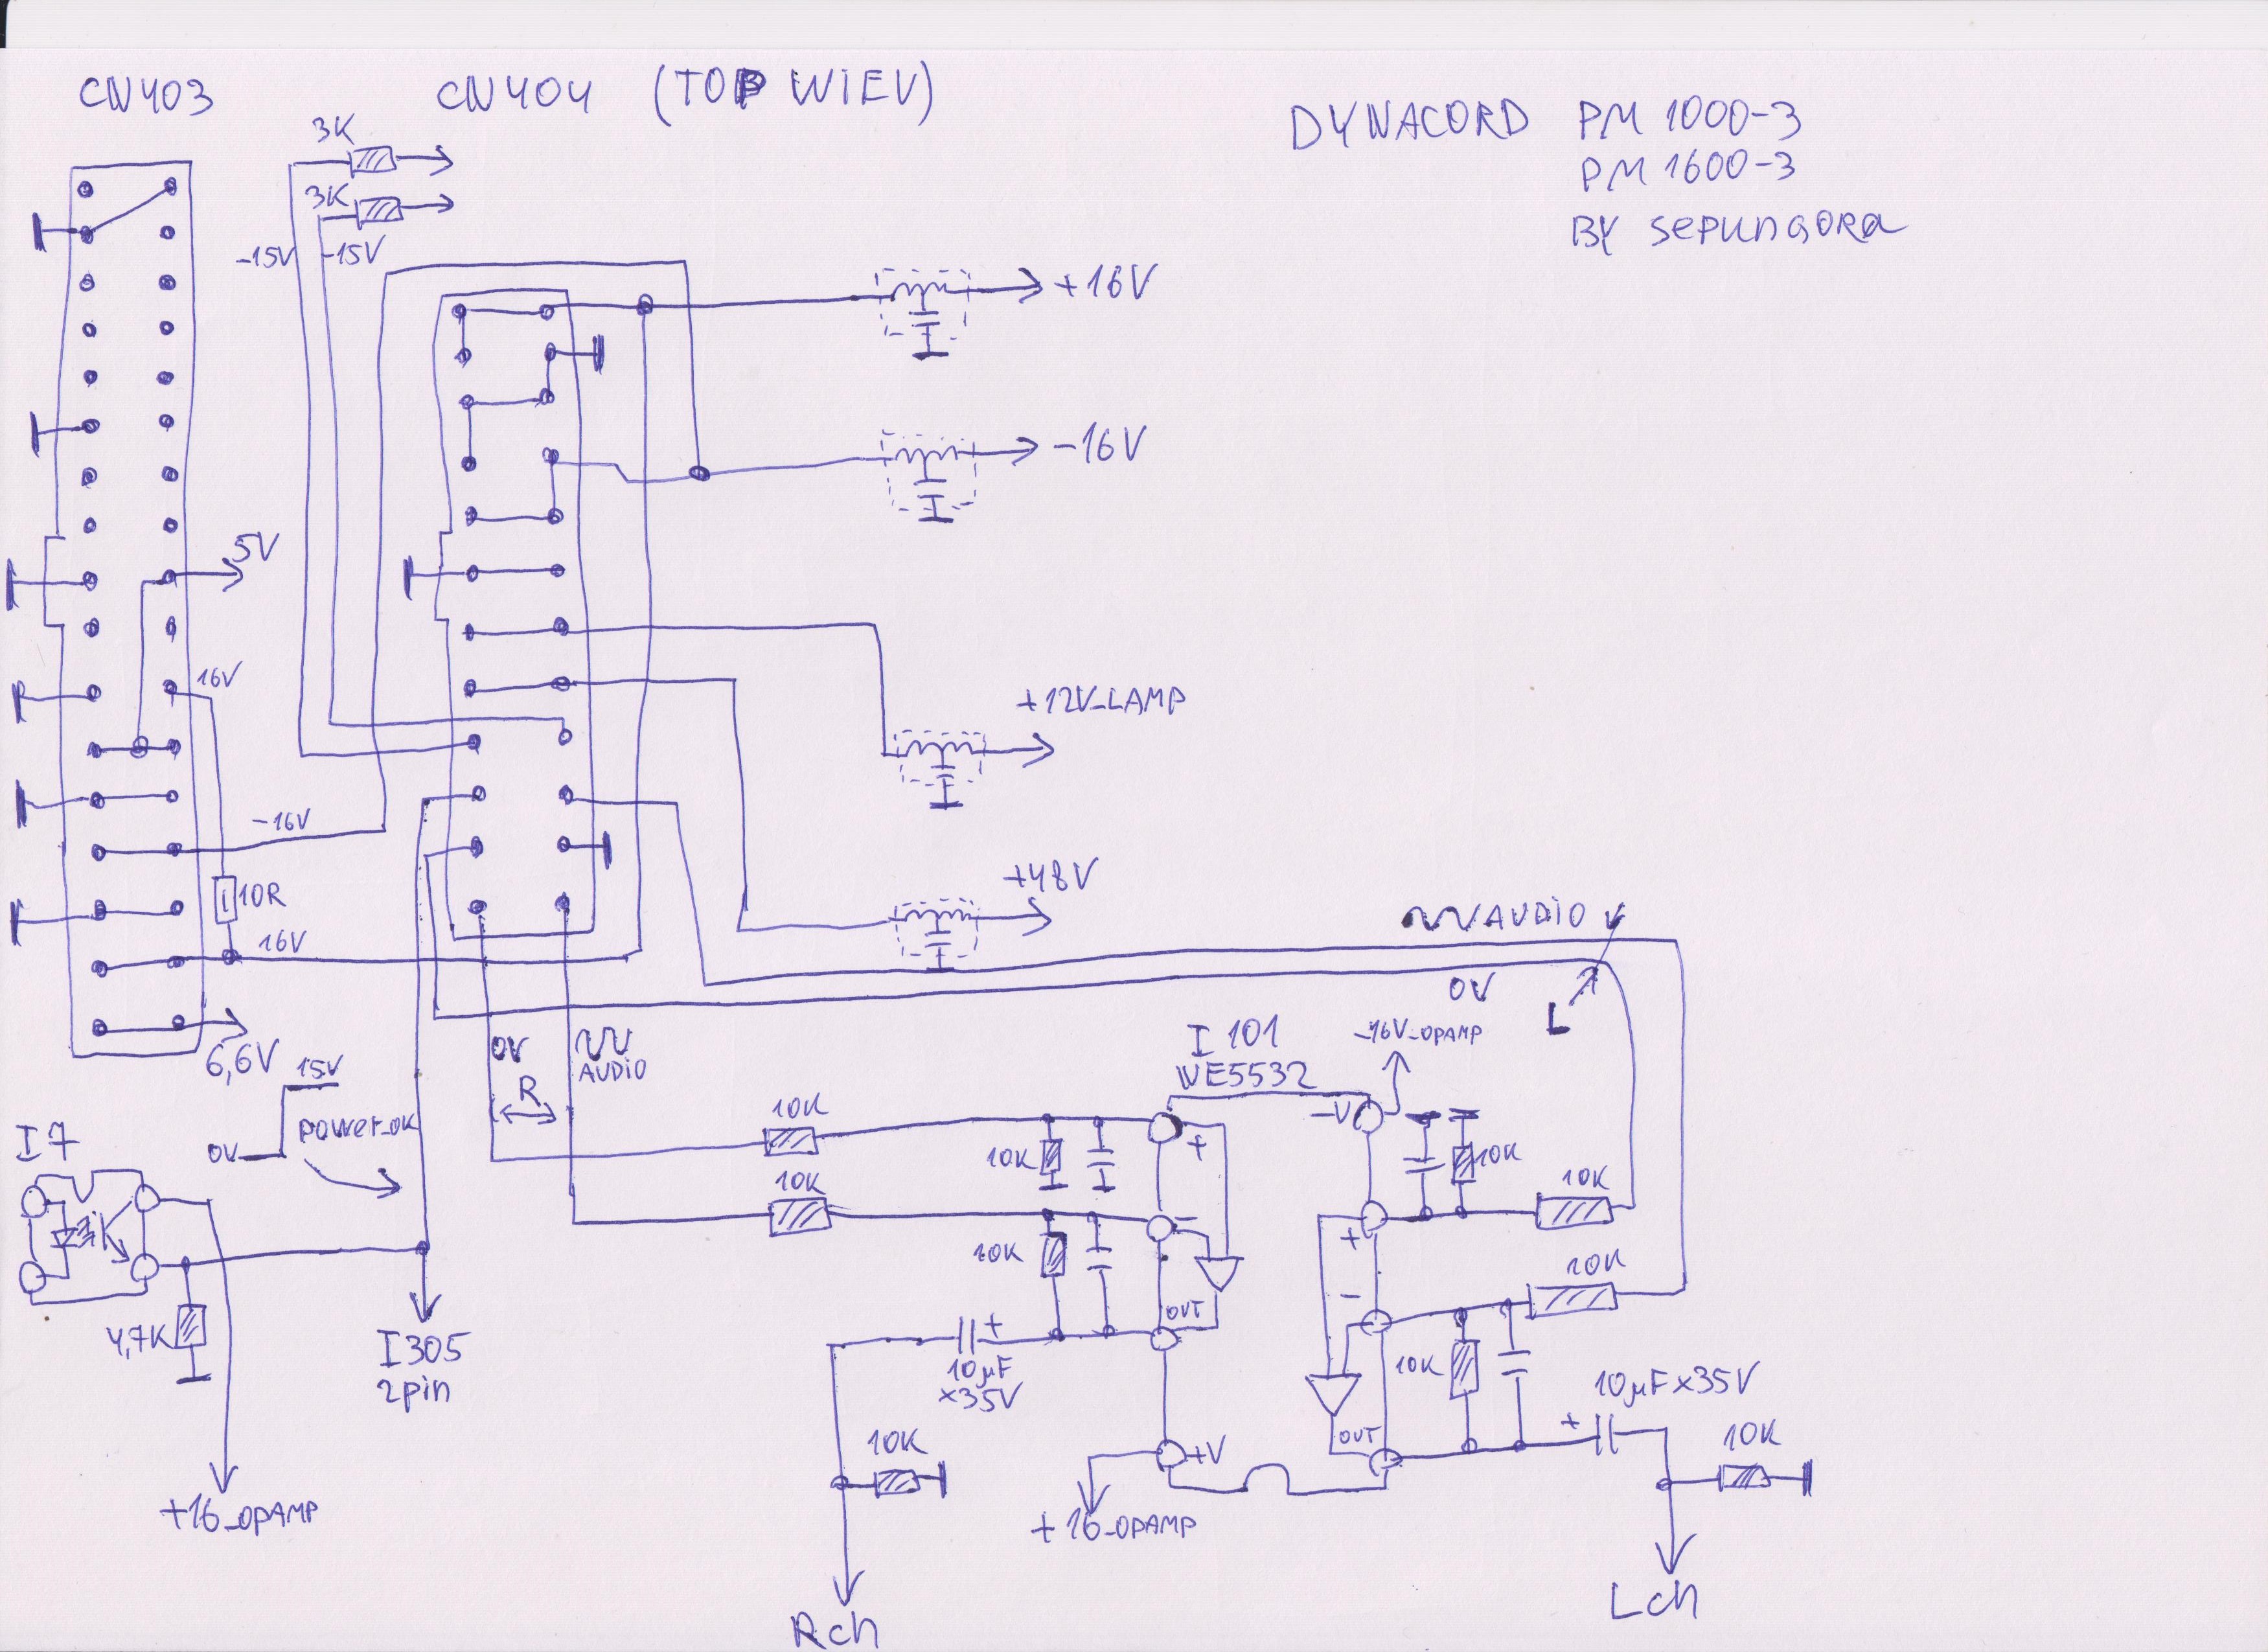 CN403
CN404 (TOP WIEV)
DYNACORD PM 1000-3
PM 1600-3
BY sepungora
3K
3K
-15V
-15V
+16V
-16V
5V
16V
+12V_LAMP
-16V
10R
+48V
16V
AUDIO
0V
L
6,6V
0V
AUDIO
R
I 101
NE5532
-16V_OPAMP
-V
15V
0V
power_ok
I7
10K
10K
+
10K
10K
10K
-
10K
+
10K
-
OUT
4,7K
I305
2pin
+
10µF
x35V
10K
10µF x35V
+
OUT
10K
10K
+V
+16_OPAMP
+16_OPAMP
Rch
Lch